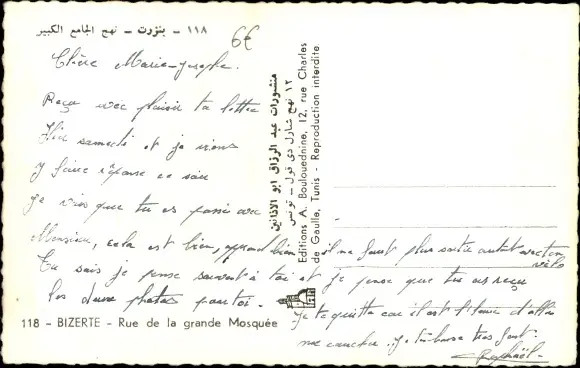 ١١٨ - بنزرت - نهج الجامع الكبير
6€
Chère Marie-Josèphe.
Reçu avec plaisir ta lettre
Hier samedi et je viens
y faire réponse ce soir
je vois que tu es passé avec
Monsieur, cela est bien, apprend bien il ne faut plus sortir autant avec ton
vélo
Tu sais je pense souvent à toi et je pense que tu as reçu
les deux photos pour toi. Je te quitte car il est l'heure d'aller
me coucher. je t'embrasse très fort.
Raphaël-
118 - BIZERTE - Rue de la grande Mosquée
منشورات عبد الرزاق ابو الاذانين
١٢ نهج شارل دي قول - تونس
Editions A. Boulouednine, 12, rue Charles
de Gaulle, Tunis - Reproduction interdite